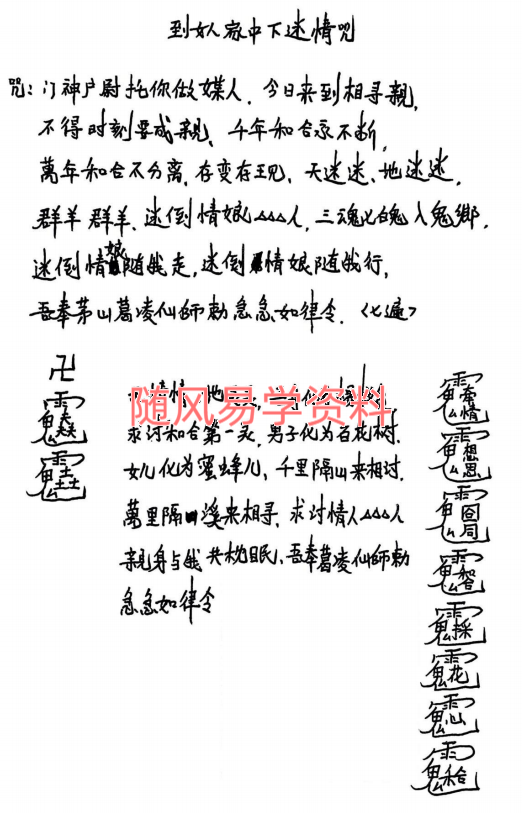 到女人家中下迷情咒
咒:门神户尉托你做媒人.今日来到相寻親,
不得时刻要成親、千年和合永不断,
萬年和合不分离,存变存现、天迷迷、地迷迷,
群羊群羊、迷倒情娘△△△人,三魂七魄入鬼鄉,
迷倒情娘随我走,迷倒情娘随我行,
吾奉茅山葛凌仙師勅急急如律令.〈七遍〉
卍
随风易学资料
求讨和合第一灵,男子化为百花树.
女儿化为蜜蜂儿、千里隔山来相讨.
萬里隔溪来相寻、求讨情人△△△人
親身与我共枕眠、吾奉葛凌仙師勅
急急如律令